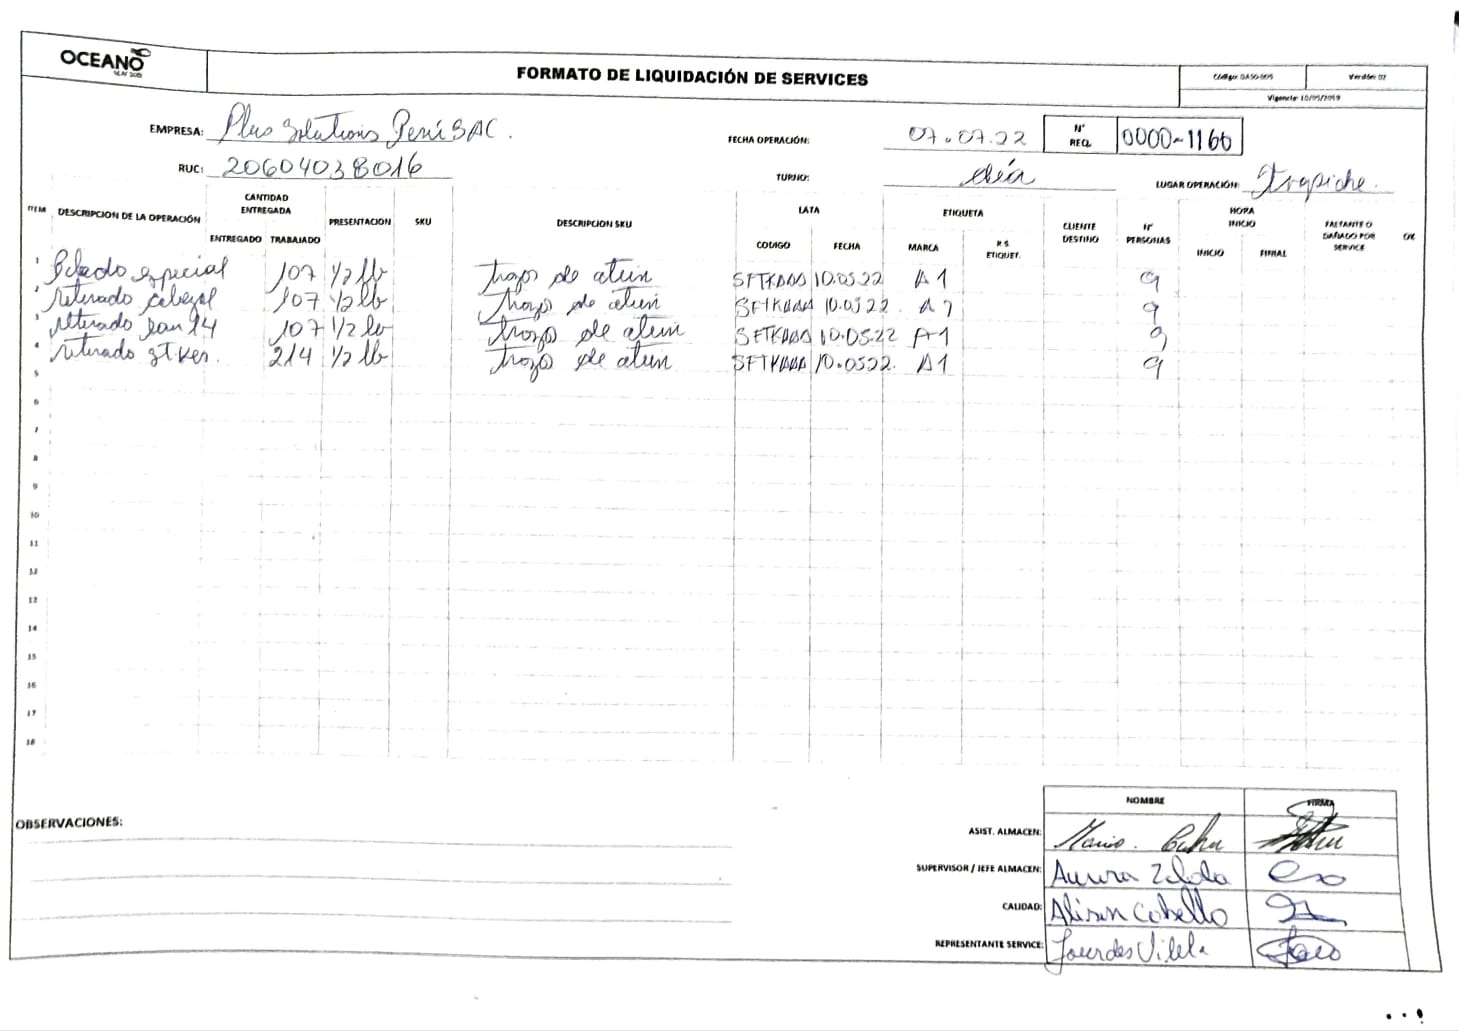 OCEANO
SEAFOOD
FORMATO DE LIQUIDACIÓN DE SERVICES
Código: OASG-005
Versión: 02
Vigencia: 10/05/2019
EMPRESA: Plus Solutions Perú SAC.
FECHA OPERACIÓN: 07.07.22
N° REQ. 0000-1160
RUC: 20604038016
TURNO: día
LUGAR OPERACIÓN: Trapiche.
ITEM DESCRIPCION DE LA OPERACIÓN CANTIDAD ENTREGADA PRESENTACION SKU DESCRIPCION SKU LATA ETIQUETA CLIENTE DESTINO N° PERSONAS HORA INICIO FALTANTE O DAÑADO POR SERVICE OK
ENTREGADO TRABAJADO CODIGO FECHA MARCA R.S. ETIQUET. INICIO FINAL
1 especial 107 1/2 lb trozo de atun 10.05.22 A1 9
2 retirado cabezal 107 1/2 lb trozo de atun 10.05.22 9
3 retirado 107 1/2 lb trozo de atun 10.05.22 A-1 9
4 retirado 214 1/2 lb trozo de atun 10.0522. A1 9
5
6
7
8
9
10
11
12
13
14
15
16
17
18
OBSERVACIONES:
NOMBRE FIRMA
ASIST. ALMACEN: Mario.
SUPERVISOR / JEFE ALMACEN: Aurora
CALIDAD: Alison Cabello
REPRESENTANTE SERVICE: Lourdes Vilela